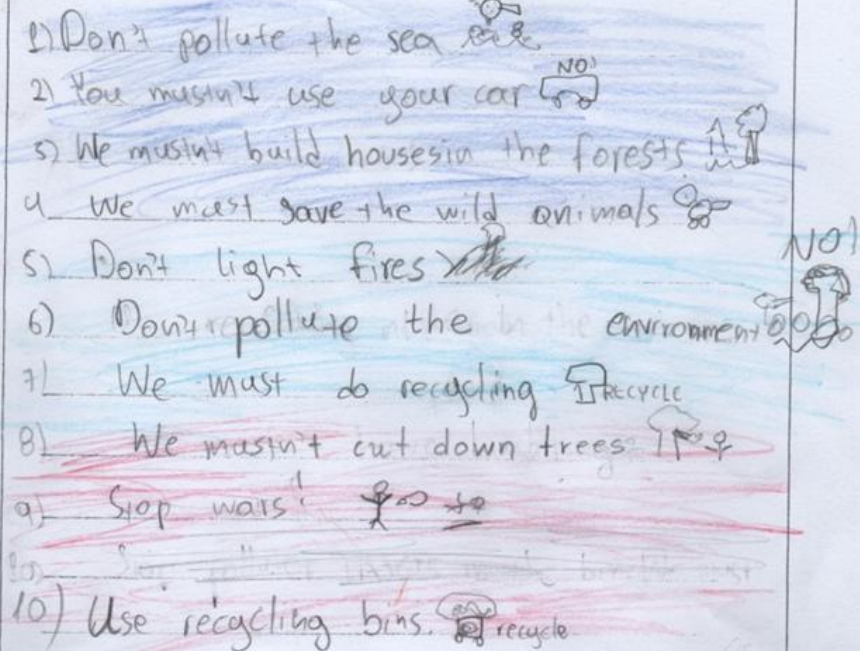 1) Don't pollute the sea
2) You mustn't use your car NO!
3) We mustn't build houses in the forests
4 We must save the wild animals
5) Don't light fires
NO!
6) Don't pollute the environment
7) We must do recycling RECYCLE
8) We mustn't cut down trees
9) Stop wars!
10) Use recycling bins. recycle